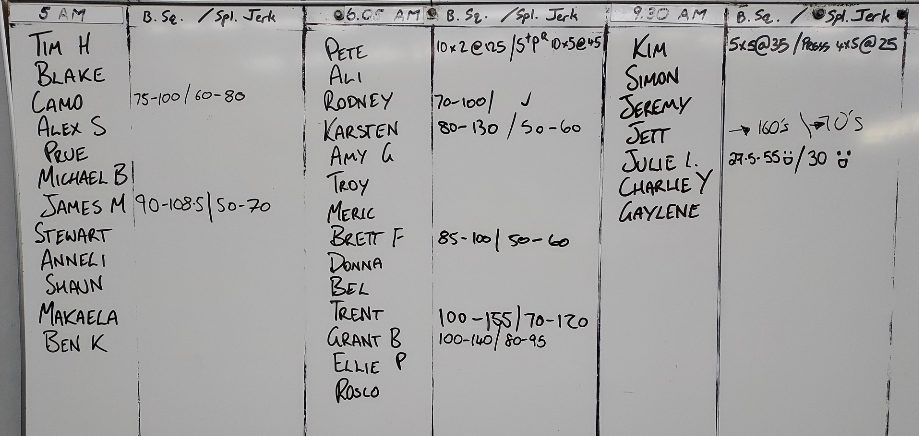 5 AM B. Sq. / Spl. Jerk
TIM H
BLAKE
CAMO 75-100 / 60-80
ALEX S
PRUE
MICHAEL B
JAMES M 90-108.5 / 50-70
STEWART
ANNELI
SHAUN
MAKAELA
BEN K
06.05 AM B. Sq. / Spl. Jerk
PETE 10x2@125 / S+PR 10x5@45
ALI
RODNEY 70-100 / ✓
KARSTEN 80-130 / 50-60
AMY G
TROY
MERIC
BRETT F 85-100 / 50-60
DONNA
BEL
TRENT 100-155 / 70-120
GRANT B 100-140 / 80-95
ELLIE P
ROSCO
9.30 AM B. Sq. / Spl. Jerk
KIM 5x5@35 / 4x5@25
SIMON
JEREMY
JETT → 160's \ → 70's
JULIE L. 27.5-55 / 30
CHARLIE Y
GAYLENE